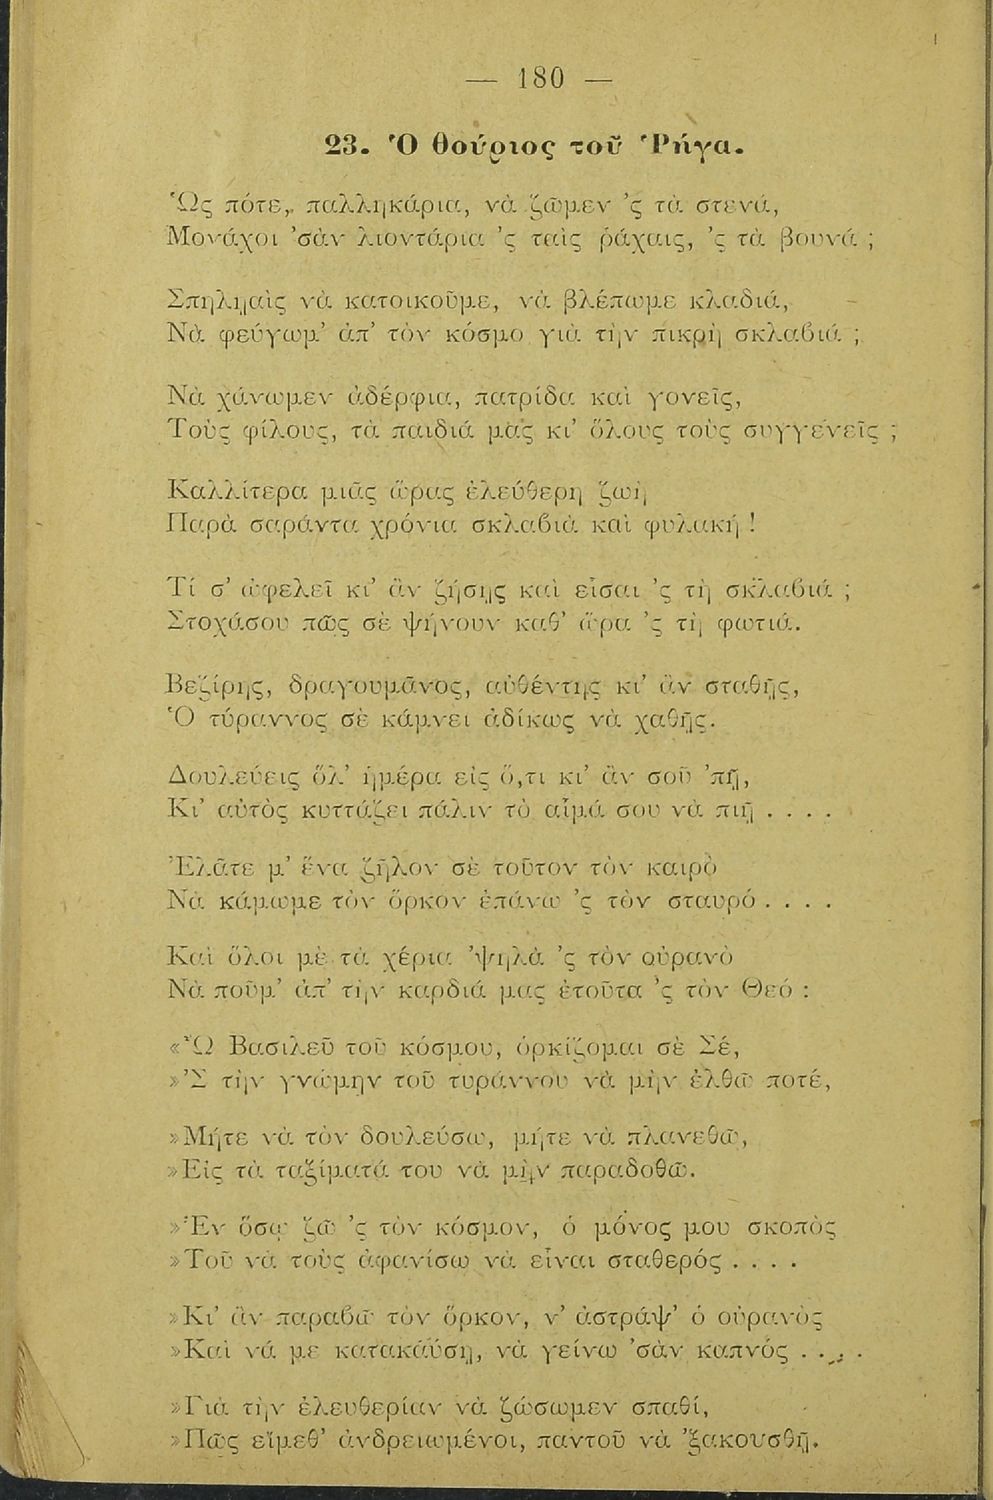 — 180 —
23. Ὁ θούριος τοῦ Ῥήγα.
Ὡς πότε, παλληκάρια, νὰ ζῶμεν 'ς τὰ στενά,
Μονάχοι 'σὰν λιοντάρια 'ς ταὶς ῥάχαις, 'ς τὰ βουνά ;
Σπηλῃαὶς νὰ κατοικοῦμε, νὰ βλέπωμε κλαδιά,
Νὰ φεύγωμ' ἀπ' τὸν κόσμο γιὰ τὴν πικρὴ σκλαβιά ;
Νὰ χάνωμεν ἀδέρφια, πατρίδα καὶ γονεῖς,
Τοὺς φίλους, τὰ παιδιά μας κι' ὅλους τοὺς συγγενεῖς ;
Καλλίτερα μιᾶς ὥρας ἐλεύθερη ζωὴ
Παρὰ σαράντα χρόνια σκλαβιὰ καὶ φυλακή !
Τί σ' ὠφελεῖ κι' ἂν ζήσῃς καὶ εἶσαι 'ς τὴ σκλαβιά ;
Στοχάσου πῶς σὲ ψήνουν καθ' ὥρα 'ς τὴ φωτιά.
Βεζίρης, δραγουμᾶνος, αὐθέντης κι' ἂν σταθῇς,
Ὁ τύραννος σὲ κάμνει ἀδίκως νὰ χαθῇς.
Δουλεύεις ὅλ' ἡμέρα εἰς ὅ,τι κι' ἂν σοῦ 'πῇ,
Κι' αὐτὸς κυττάζει πάλιν τὸ αἷμά σου νὰ πιῇ . . . .
Ἐλᾶτε μ' ἕνα ζῆλον σὲ τοῦτον τὸν καιρὸ
Νὰ κάμωμε τὸν ὅρκον ἐπάνω 'ς τὸν σταυρό . . . .
Καὶ ὅλοι μὲ τὰ χέρια 'ψηλὰ 'ς τὸν οὐρανὸ
Νὰ ποῦμ' ἀπ' τὴν καρδιά μας ἐτοῦτα 'ς τὸν Θεό :
«Ὦ Βασιλεῦ τοῦ κόσμου, ὁρκίζομαι σὲ Σέ,
»'Σ τὴν γνώμην τοῦ τυράννου νὰ μὴν ἐλθῶ ποτέ,
»Μήτε νὰ τὸν δουλεύσω, μήτε νὰ πλανεθῶ,
»Εἰς τὰ ταξίματά του νὰ μὴν παραδοθῶ.
»Ἐν ὅσῳ ζῶ 'ς τὸν κόσμον, ὁ μόνος μου σκοπὸς
»Τοῦ νὰ τοὺς ἀφανίσω νὰ εἶναι σταθερός . . . .
»Κι' ἂν παραβῶ τὸν ὅρκον, ν' ἀστράψ' ὁ οὐρανὸς
»Καὶ νά με κατακαύσῃ, νὰ γείνω 'σὰν καπνός . . . .
»Γιὰ τὴν ἐλευθερίαν νὰ ζώσωμεν σπαθί,
»Πῶς εἴμεθ' ἀνδρειωμένοι, παντοῦ νὰ 'ξακουσθῇ.